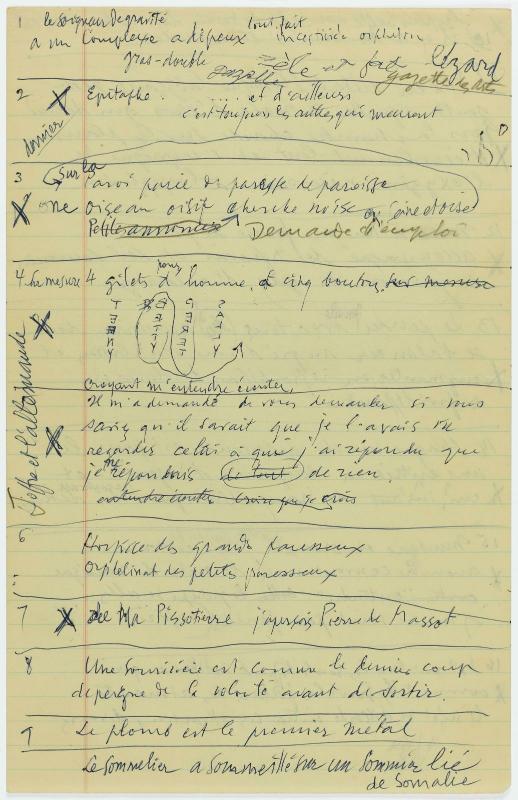 1 le Soigneur de gravité
à un Complexe adipeux tout fait
gras-double
Zèle et fat lézard
gazelle
gazette des arts
2 Epitaphe. ..... et d'ailleurs
c'est toujours les autres qui meurent
dernier
3 Sur la
Paroi parée de paresse de paroisse
one oiseau oisif cherche noise en Seine et Oise
Petites annonces Demande d'emploi
4 sur mesure 4 gilets pour homme, et cinq boutons, sur mesure
TEENY
BETTY
SALLY
Joffre et l'allemande
Croyant m'entendre écouter,
Il m'a demandé de vous demander si vous
saviez qu'il savait que je l'avais
regardé cela à quoi j'ai répondu que
je ne répondais de rien.
entendre écouter croire que je crois
6
Hospice des grands paresseux
Orphelinat des petits paresseux
7 de Ma Pissotière j'aperçois Pierre de Massot
8 Une souricière est comme le dernier coup
d'épargne de la volonté avant de sortir.
9 Le plomb est le premier métal
Le Sommelier a sommeillé sur un Sommier lié
de Somalie